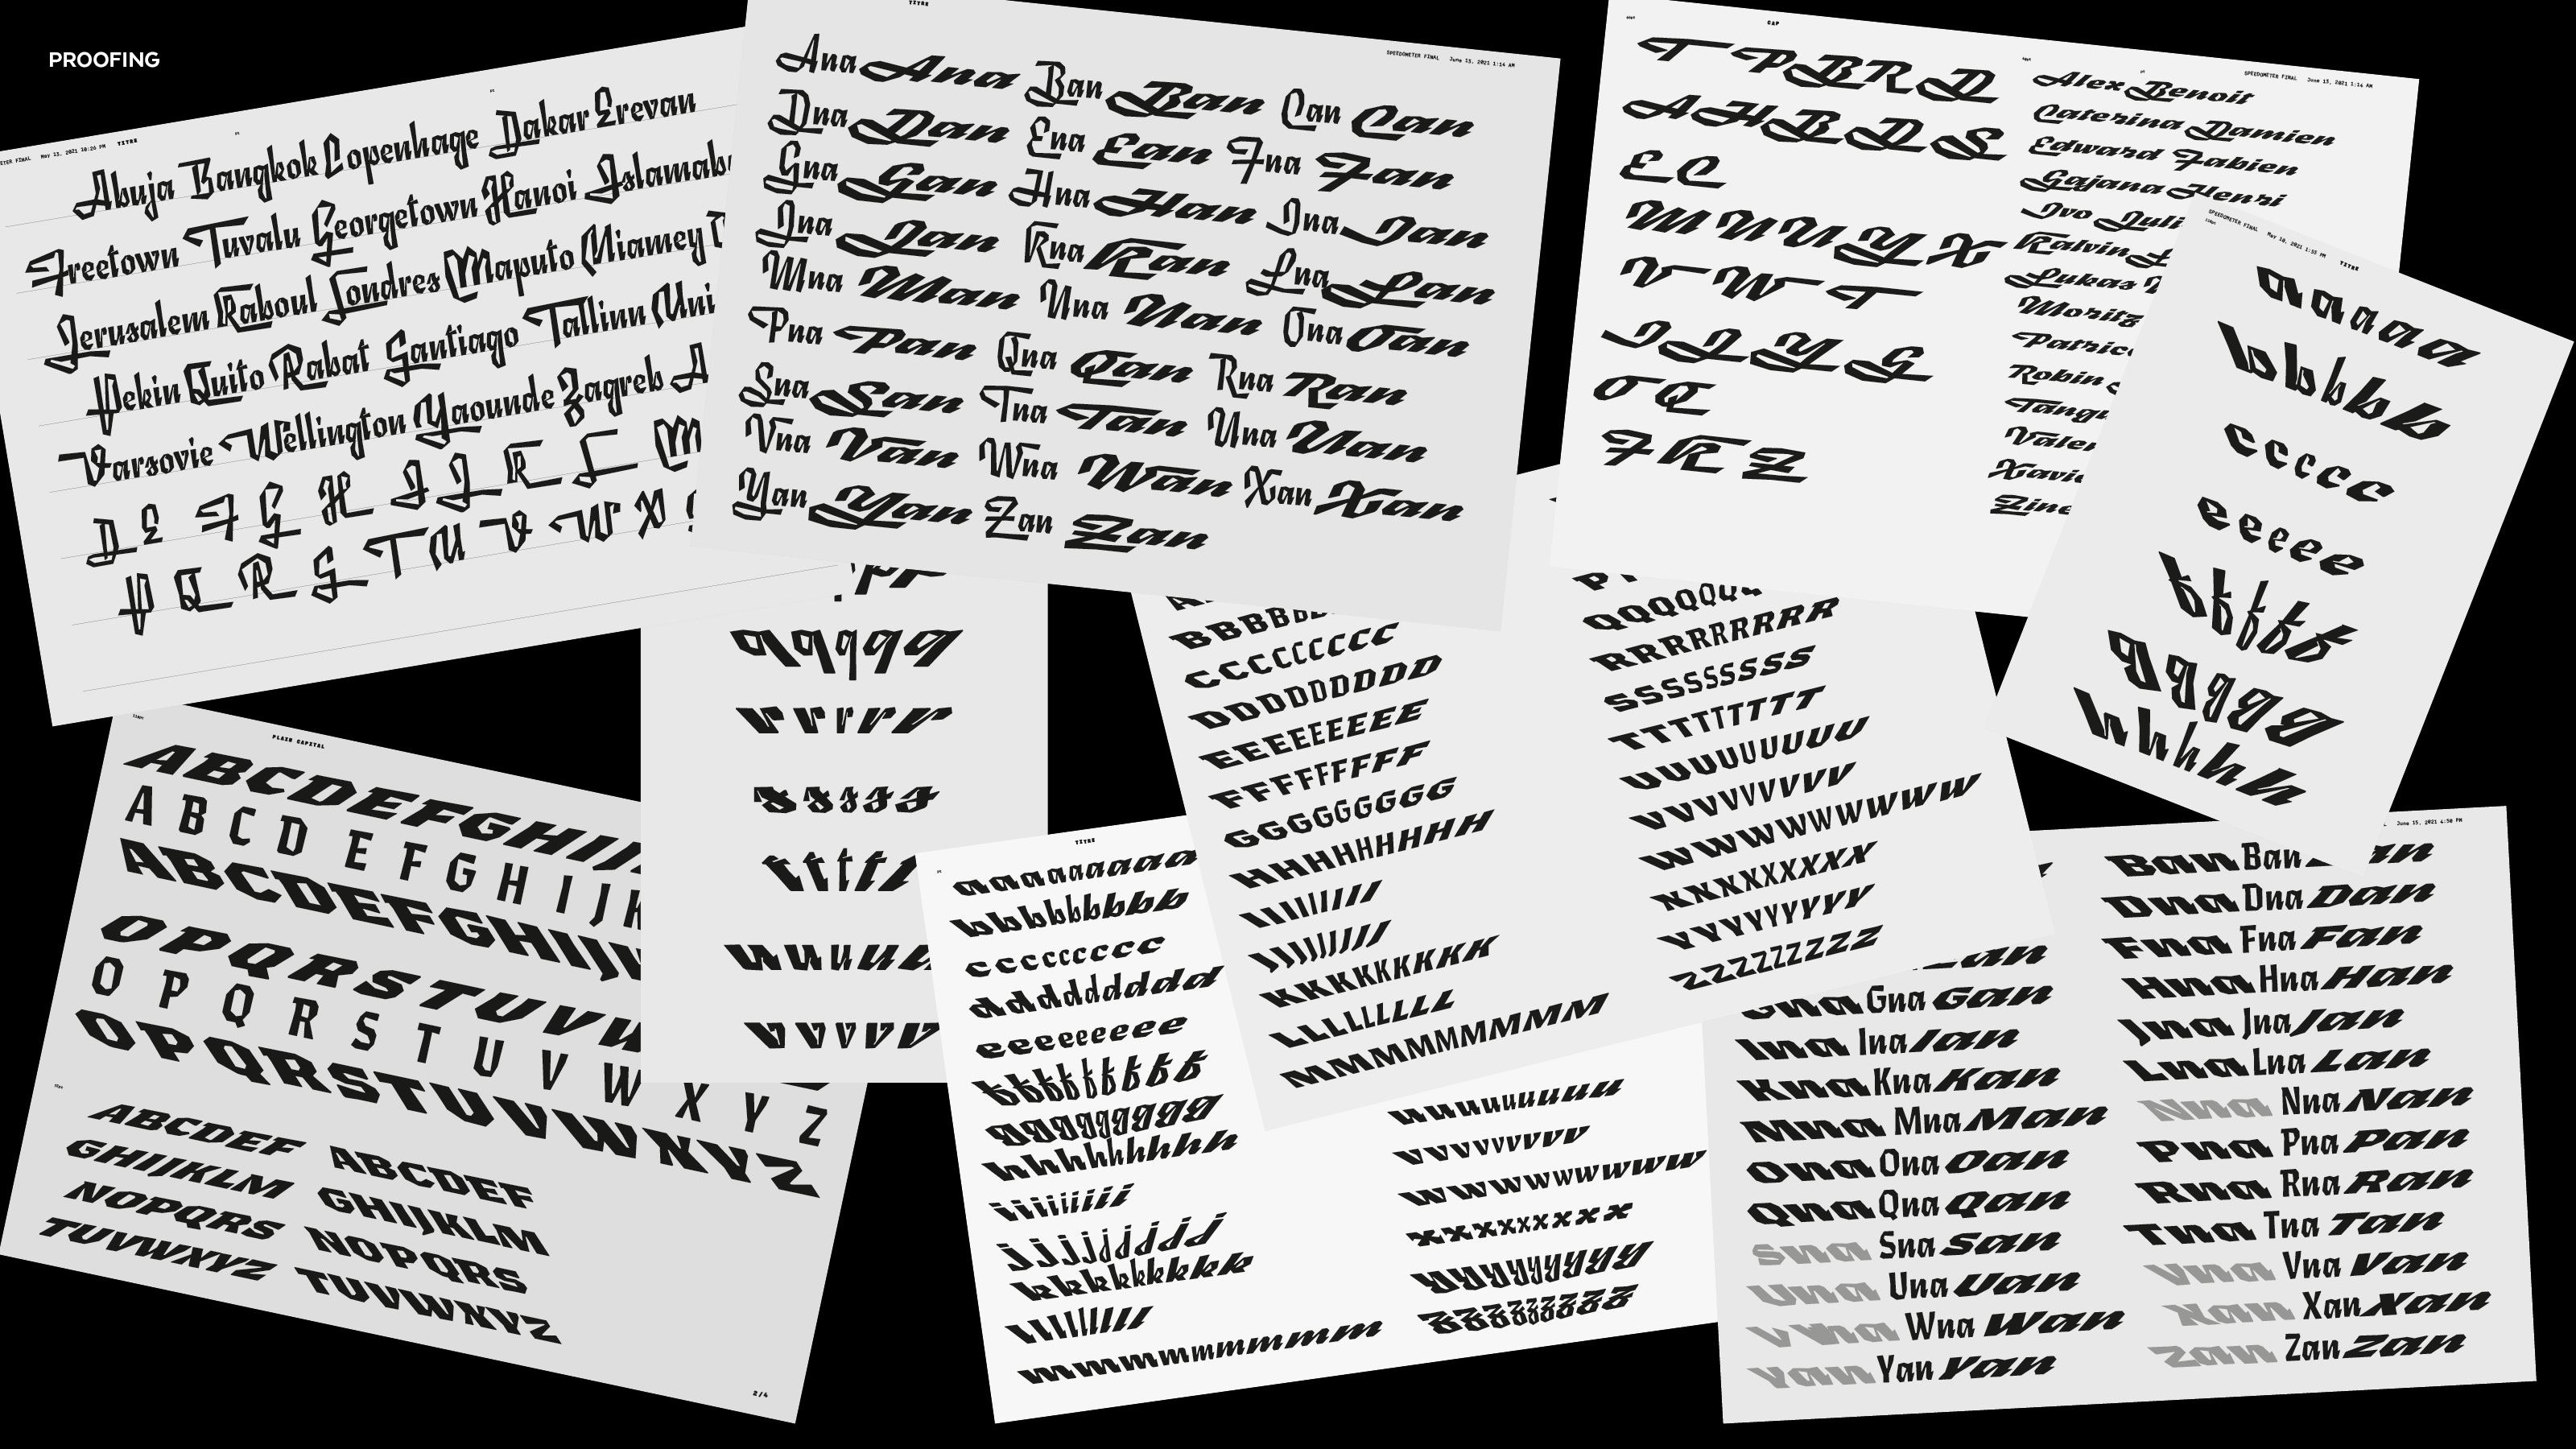 PROOFING
METER FINAL May 13, 2021 10:26 PM TITRE
Abuja Bangkok Copenhage Dakar Erevan
Freetown Tuvalu Georgetown Hanoi
Jerusalem Raboul Londres Maputo Niamey
Pekin Quito Rabat Santiago Tallinn Uni
Varsovie Wellington Yaounde Zagreb A
D E F G H I J K L M
P Q R S T U V W X
TITRE
SPEEDOMETER FINAL June 15, 2021 1:14 AM
Ana Ana Ban Ban Can Can
Dna Dan Ena Ean Fna Fan
Gna Gan Hna Han Ina Ian
Jna Jan Kna Kan Lna Lan
Mna Man Nna Nan Ona Oan
Pna Pan Qna Qan Rna Ran
Sna San Tna Tan Una Uan
Vna Van Wna Wan Xan Xan
Yan Yan Zan Zan
CAP
SPEEDOMETER FINAL June 15, 2021 1:14 AM
T P B R D
A H B D S
E C
M N U Y X
V W T
I J Y G
O Q
F K Z
Alex Benoit
Caterina Damien
Edward Fabien
Gajana Henri
Ivo Juli
Kalvin
Lukas
Moritz
Robin
SPEEDOMETER FINAL May 10, 2021 1:55 PM TITRE
a a a a a
b b b b b
c c c c c
e e e e e
f f f f f
g g g g g
h h h h h
PLAIN CAPITAL
ABCDEFGHIJ
A B C D E F G H I J K
ABCDEFGHIJ
OPQRSTUVW
O P Q R S T U V W X Y Z
OPQRSTUVWXYZ
ABCDEF ABCDEF
GHIJKLM GHIJKLM
NOPQRS NOPQRS
TUVWXYZ TUVWXYZ
2/4
q q q q q
r r r r r
s s s s s
t t t t t
u u u u u
v v v v v
TITRE
aaaaaaaaa
bbbbbbbbb
ccccccccc
ddddddddd
eeeeeeeee
fffffffff
ggggggggg
hhhhhhhhh
iiiiiiiii
jjjjjjjjj
kkkkkkkkk
lllllllll
mmmmmmmmm
uuuuuuuuu
vvvvvvvvv
wwwwwwwww
xxxxxxxxx
yyyyyyyyy
zzzzzzzzz
CCCCCCCCC
DDDDDDDDD
EEEEEEEEE
FFFFFFFFF
GGGGGGGGG
HHHHHHHHH
IIIIIIIII
JJJJJJJJJ
KKKKKKKKK
LLLLLLLLL
MMMMMMMMM
RRRRRRRRR
SSSSSSSSS
TTTTTTTTT
UUUUUUUUU
VVVVVVVVV
WWWWWWWWW
XXXXXXXXX
YYYYYYYYY
ZZZZZZZZZ
June 15, 2021 4:50 PM
Gna Gna Gan
Ina Ina Ian
Kna Kna Kan
Mna Mna Man
Ona Ona Oan
Qna Qna Qan
Sna Sna San
Una Una Uan
Wna Wan
Yan Yan Yan
Ban Ban
Dna Dna Dan
Fna Fna Fan
Hna Hna Han
Jna Jna Jan
Lna Lna Lan
Nna Nna Nan
Pna Pna Pan
Rna Rna Ran
Tna Tna Tan
Vna Vna Van
Xan Xan Xan
Zan Zan Zan